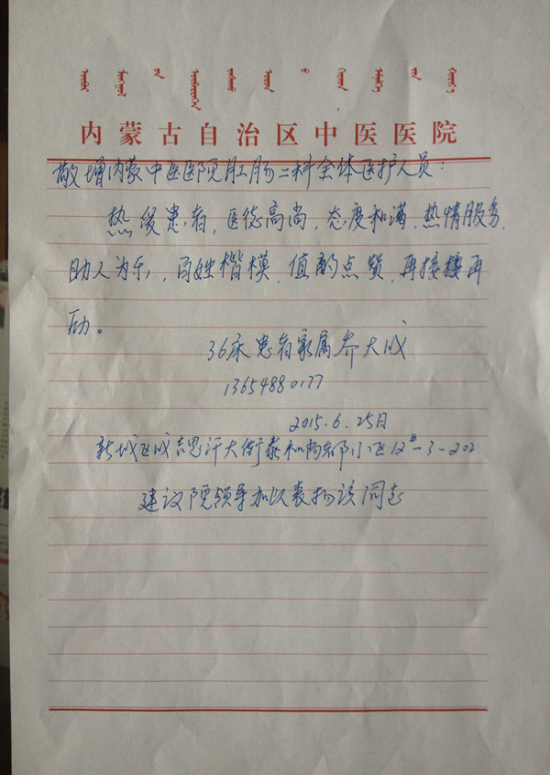 内蒙古自治区中医医院
敬增内蒙中医医院肛肠二科全体医护人员：
热爱患者，医德高尚，态度和满，热情服务，
助人为乐，百姓楷模，值的点赞，再接接再
励。
36床患者家属乔大成
13654880177
2015.6.25日
新城区成吉思汗大街泰和尚都小区12#-3-202
建议院领导加以表扬该同志